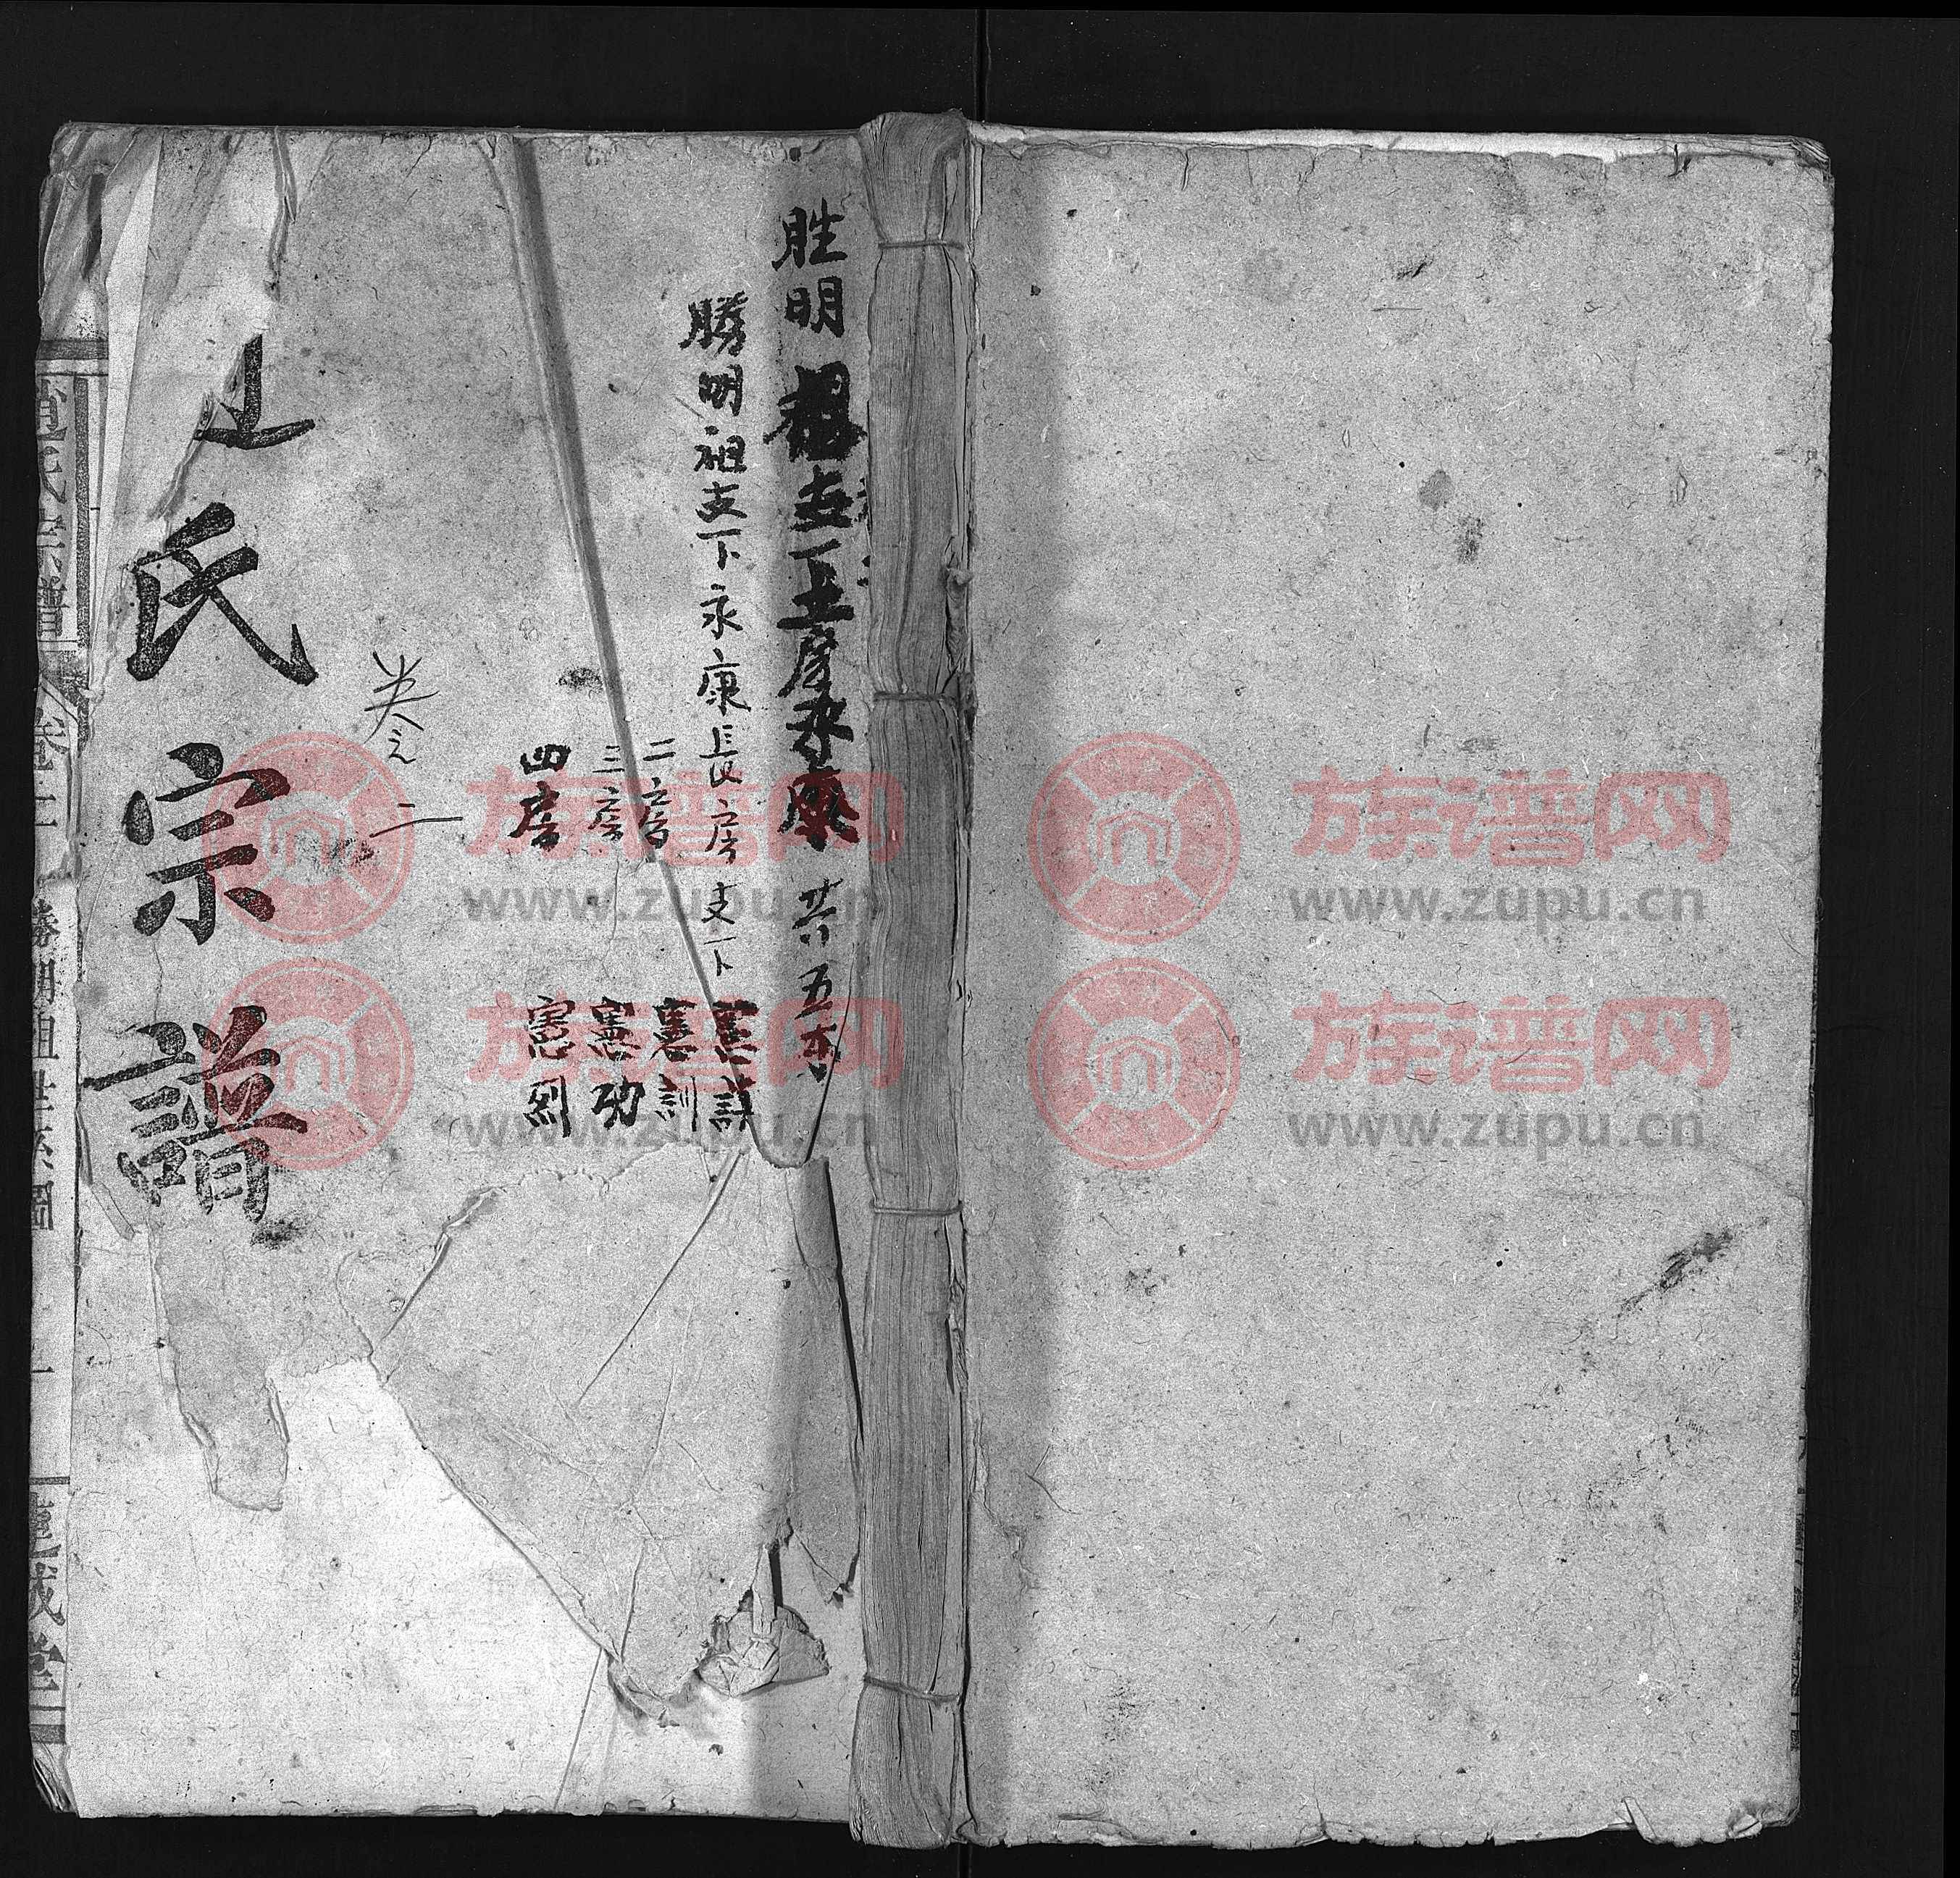 胜明祖支下长房永康 共五本
勝明祖支下永康長房支下 憲謨
二房 憲訓
三房 憲功
四房 憲烈
卷之二
氏宗譜
趙氏宗譜 卷二 勝明祖世系圖 一 建成堂
族谱网
www.zupu.cn
族谱网
www.zupu.cn
族谱网
www.zupu.cn
族谱网
www.zupu.cn